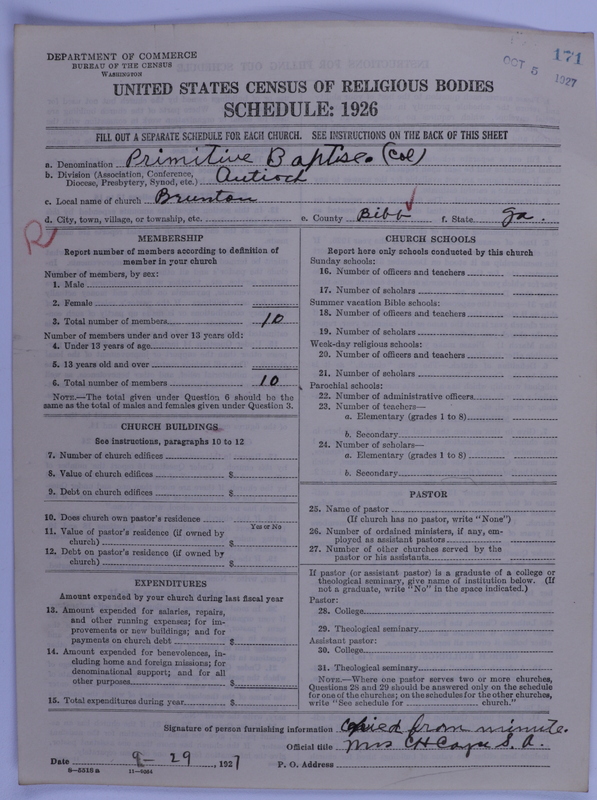 DEPARTMENT OF COMMERCE
BUREAU OF THE CENSUS
WASHINGTON
171
OCT 5 1927
UNITED STATES CENSUS OF RELIGIOUS BODIES
SCHEDULE: 1926
FILL OUT A SEPARATE SCHEDULE FOR EACH CHURCH. SEE INSTRUCTIONS ON THE BACK OF THIS SHEET
a. Denomination Primitive Baptise. (Col)
b. Division (Association, Conference, Diocese, Presbytery, Synod, etc.) Antioch
c. Local name of church Brunton
d. City, town, village, or township, etc. e. County Bibb f. State Ga.
R
MEMBERSHIP
Report number of members according to definition of
member in your church
Number of members, by sex:
1. Male
2. Female
3. Total number of members 10
Number of members under and over 13 years old:
4. Under 13 years of age
5. 13 years old and over
6. Total number of members 10
NOTE.—The total given under Question 6 should be the
same as the total of males and females given under Question 3.
CHURCH BUILDINGS
See instructions, paragraphs 10 to 12
7. Number of church edifices
8. Value of church edifices $
9. Debt on church edifices $
10. Does church own pastor's residence
Yes or No
11. Value of pastor's residence (if owned by
church) $
12. Debt on pastor's residence (if owned by
church) $
EXPENDITURES
Amount expended by your church during last fiscal year
13. Amount expended for salaries, repairs,
and other running expenses; for im-
provements or new buildings; and for
payments on church debt $
14. Amount expended for benevolences, in-
cluding home and foreign missions; for
denominational support; and for all
other purposes $
15. Total expenditures during year $
CHURCH SCHOOLS
Report here only schools conducted by this church
Sunday schools:
16. Number of officers and teachers
17. Number of scholars
Summer vacation Bible schools:
18. Number of officers and teachers
19. Number of scholars
Week-day religious schools:
20. Number of officers and teachers
21. Number of scholars
Parochial schools:
22. Number of administrative officers
23. Number of teachers—
a. Elementary (grades 1 to 8)
b. Secondary
24. Number of scholars—
a. Elementary (grades 1 to 8)
b. Secondary
PASTOR
25. Name of pastor
(If church has no pastor, write "None")
26. Number of ordained ministers, if any, em-
ployed as assistant pastors
27. Number of other churches served by the
pastor or his assistants
If pastor (or assistant pastor) is a graduate of a college or
theological seminary, give name of institution below. (If
not a graduate, write "No" in the space indicated.)
Pastor:
28. College
29. Theological seminary
Assistant pastor:
30. College
31. Theological seminary
NOTE.—Where one pastor serves two or more churches,
Questions 28 and 29 should be answered only on the schedule
for one of the churches; on the schedules for the other churches,
write "See schedule for church."
Signature of person furnishing information Copied from minute.
Official title Mrs CH S. A.
Date 9-29, 1927 P. O. Address
8-5515a 11-9094